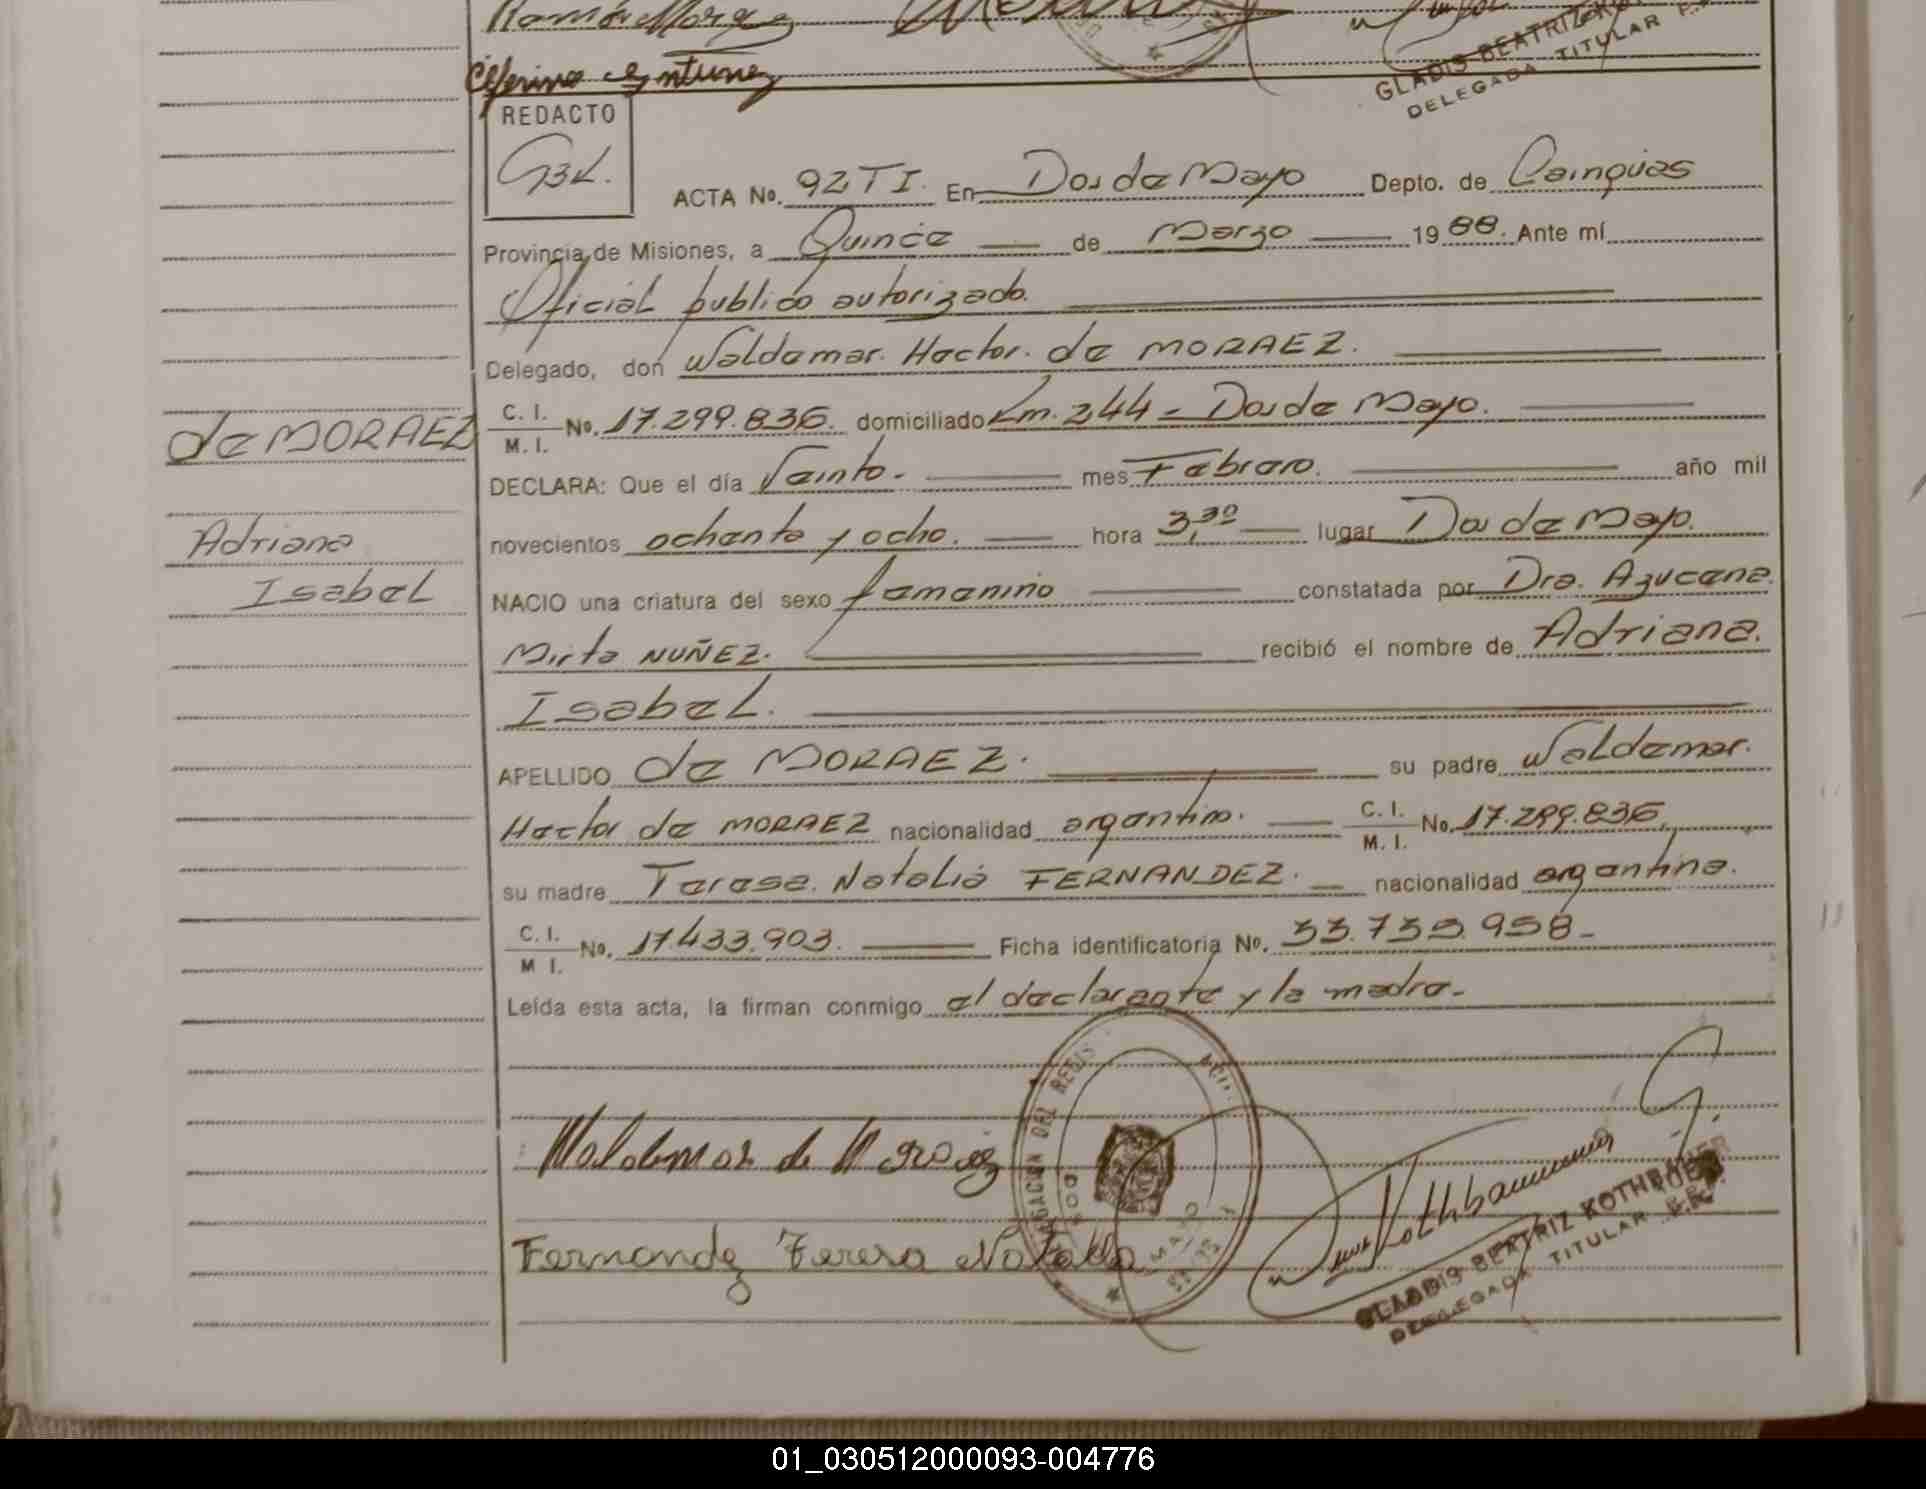 Ramón
Ceferino Antunez
GLADIS BEATRIZ
DELEGADA TITULAR
REDACTO
GBK.
ACTA No. 92 T I. En Dos de Mayo Depto. de Cainguas
Provincia de Misiones, a Quince de Marzo 1988. Ante mí
Oficial publico autorizado.
Delegado, don Waldemar. Hector. de MORAEZ.
de MORAEZ
C. I.
M. I. No. 17.299.836. domiciliado Km. 244 - Dos de Mayo.
DECLARA: Que el día Veinte. mes Febrero. año mil
Adriana
novecientos ochenta y ocho. hora 3,30 lugar Dos de Mayo.
Isabel
NACIO una criatura del sexo femenino constatada por Dra. Azucena.
Mirta NUÑEZ. recibió el nombre de Adriana.
Isabel.
APELLIDO de MORAEZ. su padre Waldemar.
Hector de MORAEZ nacionalidad argentino. C. I.
M. I. No. 17.299.836.
su madre Teresa. Natalia FERNANDEZ. nacionalidad argentina.
C. I.
M I. No. 17.433.903. Ficha identificatoria No. 33.735.958-
Leída esta acta, la firman conmigo el declarante y la madre-
Waldemar de Moraez
Fernandez Teresa Natalia
DELEGACION DEL REGIS
DOS
MAYO
Kothbauer
GLADIS BEATRIZ KOTHBAUER
DELEGADA TITULAR R.P.
01_030512000093-004776